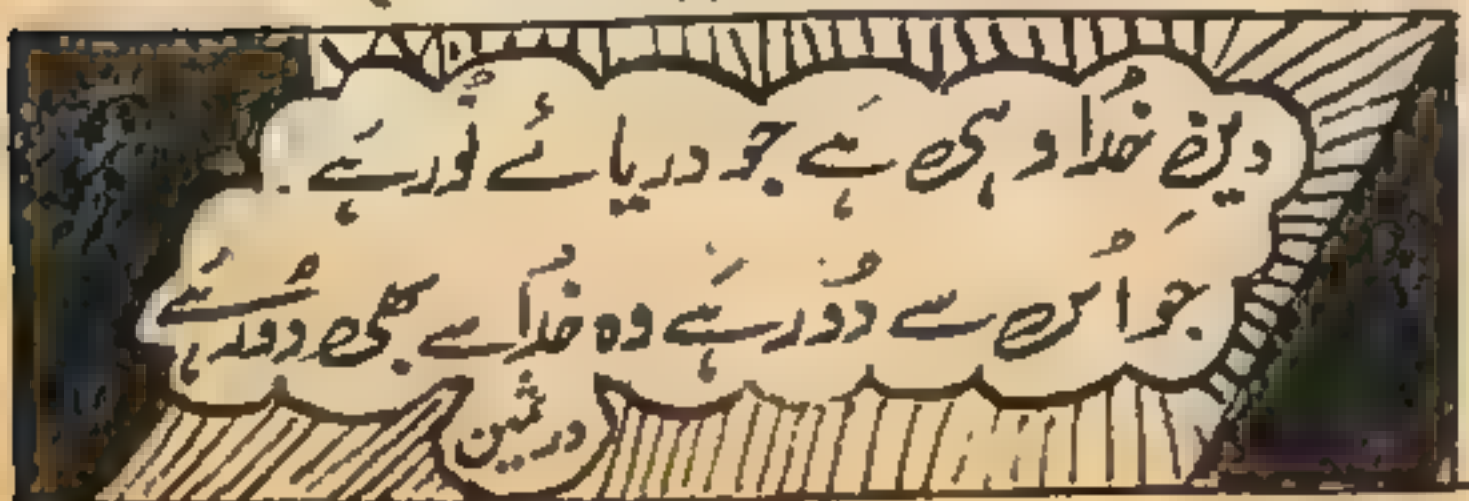 دینِ خُدا وہی ہَے جو دریائے نُور ہَے
جو اُس سے دُور ہَے وہ خُدا سے بھی دُور ہَے
درثمین